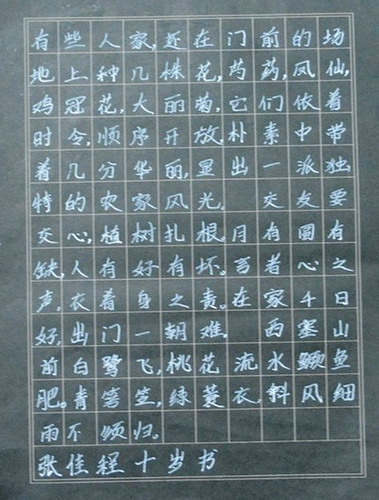 有些人家,还在门前的场
地上种几株花,芍药,凤仙,
鸡冠花,大丽菊,它们依着
时令,顺序开放,朴素中带
着几分华丽,显出一派独
特的农家风光。 交友要
交心,植树扎根。月有圆有
缺,人有好有坏。言者心之
声,衣着身之责。在家千日
好,出门一朝难。 西塞山
前白鹭飞,桃花流水鳜鱼
肥。青箬笠,绿蓑衣,斜风细
雨不须归。
张佳程十岁书